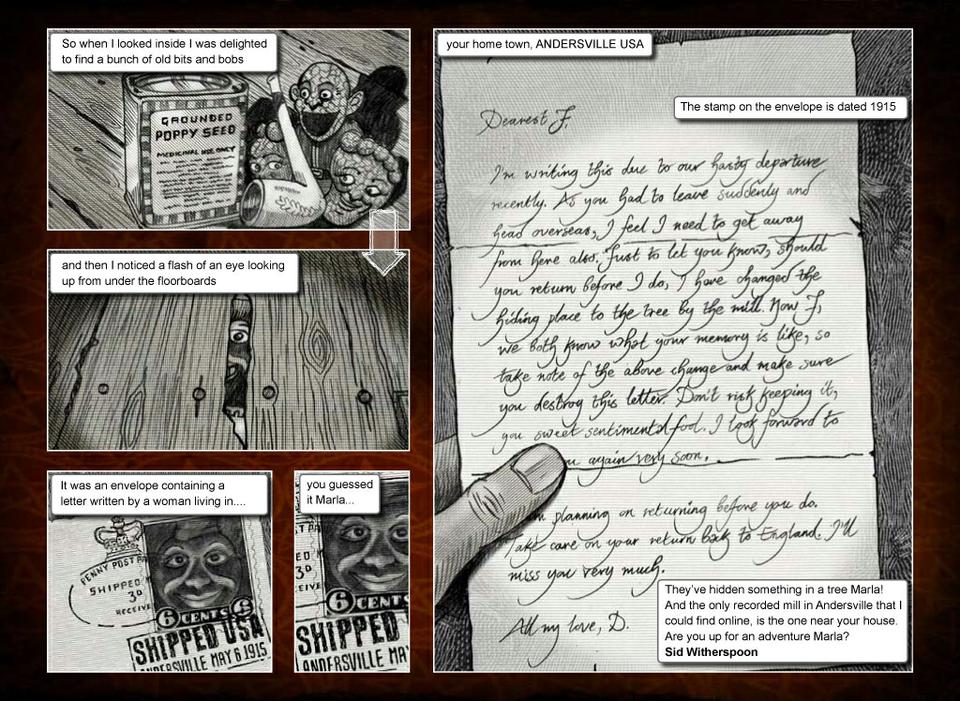 So when I looked inside I was delighted
to find a bunch of old bits and bobs
GROUNDED
POPPY SEED
MEDICINAL USE ONLY
and then I noticed a flash of an eye looking
up from under the floorboards
It was an envelope containing a
letter written by a woman living in....
PENNY POST PA
SHIPPED
3D
RECEIVE
6 CENTS 6
SHIPPED USA
ANDERSVILLE MAY 6 1915
you guessed
it Marla...
3D
6 CENTS
SHIPPED
ANDERSVILLE MA
your home town, ANDERSVILLE USA
The stamp on the envelope is dated 1915
Dearest F,
I'm writing this due to our hasty departure
recently. As you had to leave suddenly and
head overseas, I feel I need to get away
from here also. Just to let you know, should
you return before I do, I have changed the
hiding place to the tree by the mill. Now F,
we both know what your memory is like, so
take note of the above change and make sure
you destroy this letter. Don't risk keeping it,
you sweet sentimental fool. I look forward to
again very soon.
planning on returning before you do.
Take care on your return back to England. I'll
miss you very much.
All my love, D.
They've hidden something in a tree Marla!
And the only recorded mill in Andersville that I
could find online, is the one near your house.
Are you up for an adventure Marla?
Sid Witherspoon